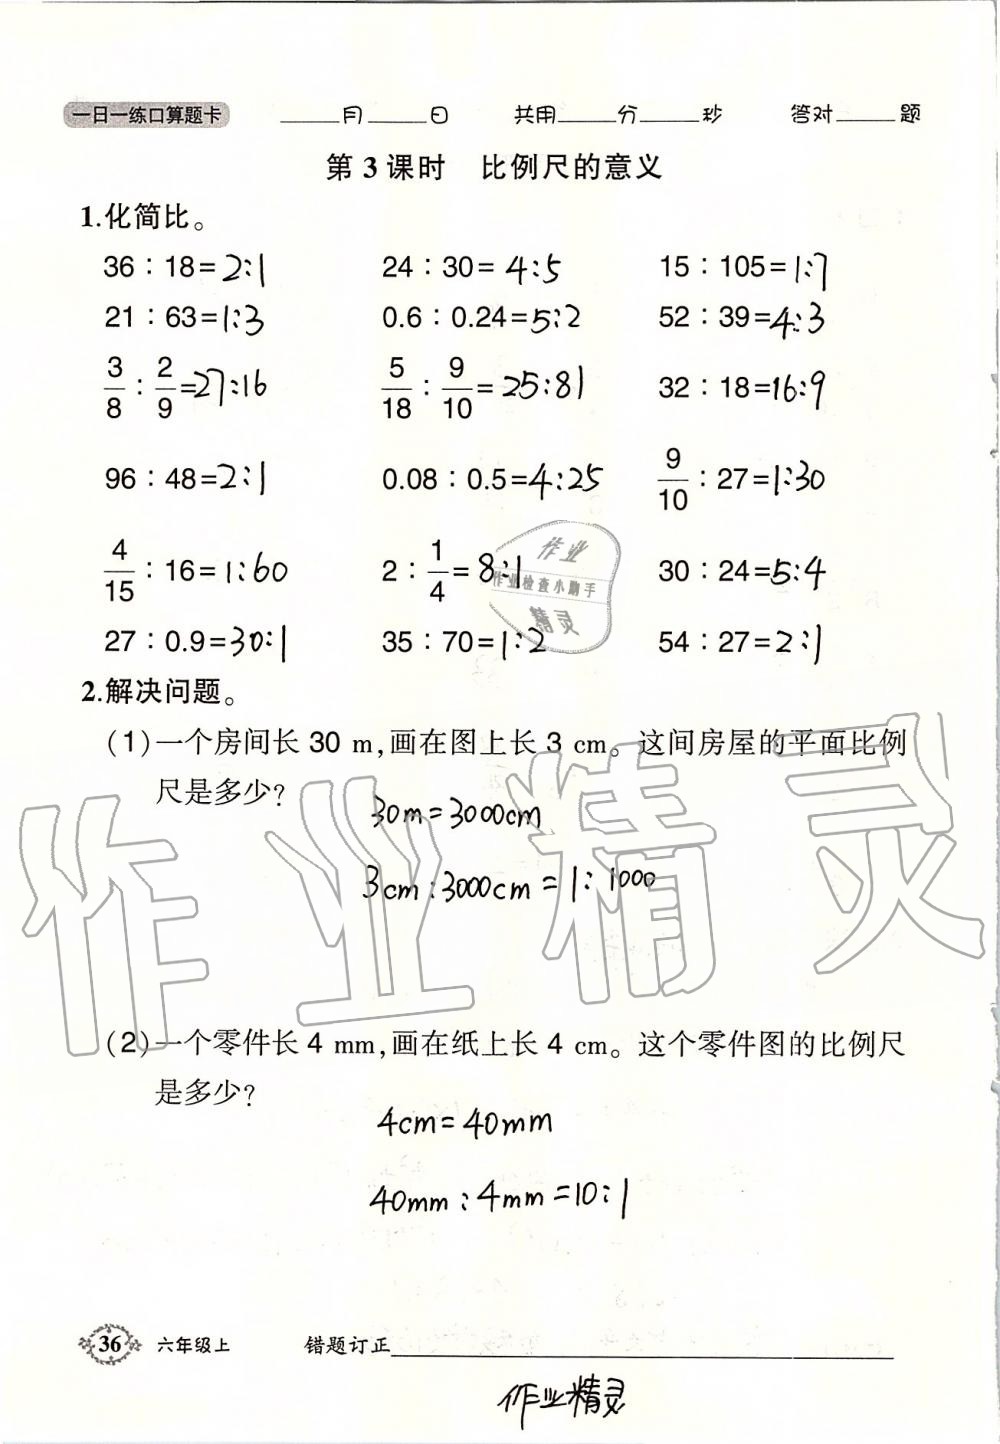 一日一练口算题卡 ____月____日 共用____分____秒 答对____题
第3课时 比例尺的意义
1.化简比。
36∶18=2:1 24∶30=4:5 15∶105=1:7
21∶63=1:3 0.6∶0.24=5:2 52∶39=4:3
3/8∶2/9=27:16 5/18∶9/10=25:81 32∶18=16:9
96∶48=2:1 0.08∶0.5=4:25 9/10∶27=1:30
4/15∶16=1:60 2∶1/4=8:1 30∶24=5:4
27∶0.9=30:1 35∶70=1:2 54∶27=2:1
作业
作业检查小助手
精灵
2.解决问题。
(1)一个房间长30 m,画在图上长3 cm。这间房屋的平面比例
尺是多少?
30m=3000cm
3cm:3000cm=1:1000
作业精灵
(2)一个零件长4 mm,画在纸上长4 cm。这个零件图的比例尺
是多少?
4cm=40mm
40mm:4mm=10:1
36 六年级上 错题订正____
作业精灵